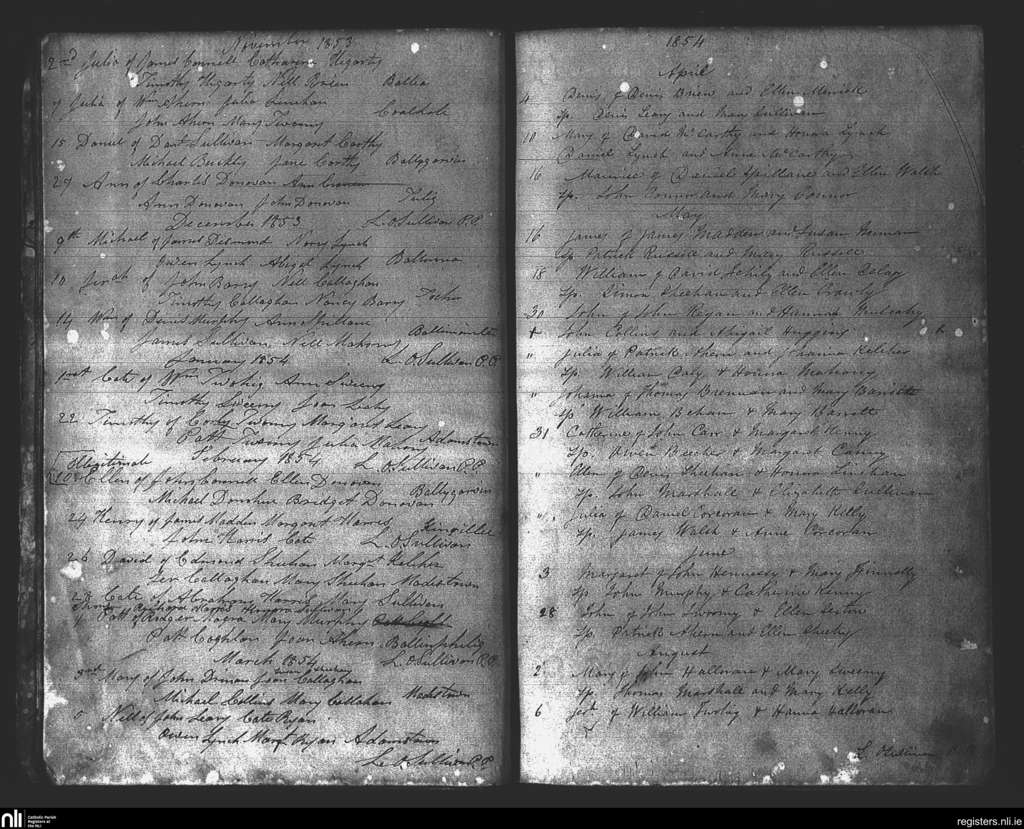 November 1853
2nd Julia of James Connell Catharine Hegarty
Timothy Hegarty Nell Ballea
7 Julia of Wm Ahern Julia Linehan
John Ahern Mary Twomy Coaldale
15 Daniel of Danl Sullivan Margaret Corthy
Michael Buckley Jane Corthy Ballygarvin
29 Ann of Charles Donovan Ann
Ann Donovan John Donovan Tulig
December 1853 L. O Sullivan P.P.
9th Michael of James Desmond Nory Lynch
Owen Lynch Abigel Lynch
10 of John Barry Nell Callaghan
Timothy Callaghan Nancy Barry
14 Wm of Denis Murphy Ann
James Sullivan Nell Mahony
January 1854 L. O Sullivan P.P.
1st Cate of Wm Twohig Ann Sweeny
Timothy Sweeny Joan Leahy
22 Timothy of Twomy Margaret Leary
Patt Twomy Julia Adamstown
February 1854 L. O Sullivan P.P.
Illegitimate
10 Ellen of John Connell Ellen Donovan
Michael Donovan Bridget Donovan Ballygarvin
24 Henry of James Madden Margaret Harris
John Harris Cate L. O Sullivan
26 David of Edmond Sheehan Margt Keleher
Callaghan Mary Sheehan Meadstown
28 Cate of Abraham Harris Mary Sullivan
Richard Harris Sullivan
Patt of Roger Magra Mary Murphy
Patt Coghlan Joan Ahern Ballinphelig
March 1854 L. O Sullivan P.P.
3rd Mary of John Joan Callaghan
Michael Collins Mary Callahan Meadstown
5 Nell of John Leary Cate Ryan
Owen Lynch Margt Ryan Adamstown
L. O Sullivan P.P.
1854
April
4 Denis of Denis Brien and Ellen
Sp. Denis Leary and Mary Sullivan
10 Mary of David McCarthy and Honora Lynch
Daniel Lynch and Anne McCarthy
16 Maurice of Daniel Spillane and Ellen Walsh
Sp. John Connor and Mary Connor
May
16 James of James Madden and Susan
Sp Patrick Russell and Mary Russell
18 William of David and Ellen
Sp. Simon Sheehan and Ellen Crowly
30 John of John Regan and Hannah Mulcahy
+ John Collins and Abigail Huggins
" Julia of Patrick Ahern and Johanna Keleher
Sp. William Daly & Honora Mahony
" Johana of Thomas Brennan and Mary Barrett
Sp William Behan & Mary Barrett
31 Catherine of John Carr & Margaret Kenny
Sp. Owen Beecher & Margaret
" Ellen of Denis Sheehan & Honora Linehan
Sp. John Marshall & Elizabeth Sullivan
" Julia of Daniel Corcoran & Mary Kelly
Sp. James Walsh & Anne Corcoran
June
3 Margaret of John Hennessy & Mary Finnelly
Sp John Murphy & Catherine Kenny
28 John of John Twoomy & Ellen Sexton
Sp. Patrick Ahern and Ellen Sheehy
August
2 Mary of John Halloran & Mary Sweeny
Sp. Thomas Marshall and Mary Kelly
6 of William Twohig & Hanna Halloran
L. O Sullivan
nli
Catholic Parish
Registers at
the NLI
registers.nli.ie